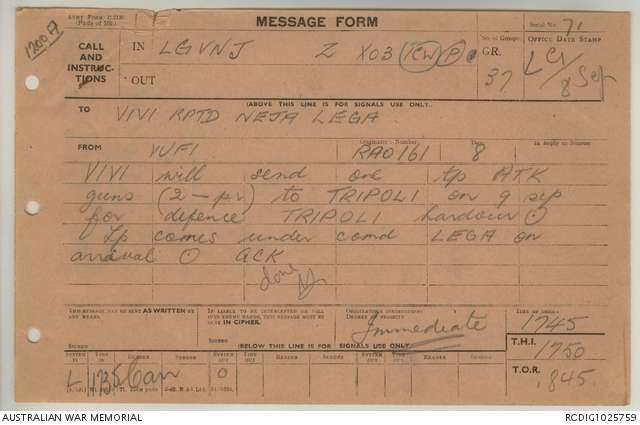 Army Form C.2136
(Pads of 100)
MESSAGE FORM
Serial No. 71
1200 A
CALL
AND
INSTRUC-
TIONS
IN LGVNJ Z X03 ICW P
OUT
No. of Groups.
GR.
37
OFFICE DATE STAMP
8 Sep
(ABOVE THIS LINE IS FOR SIGNALS USE ONLY.
TO VIVI RPTD NEJA LEGA
FROM VUFI
Originator's Number RAO161
Date 8
In Reply to Number
VIVI will send one tp ATK
guns (2-pr) to TRIPOLI on 9 sep
for defence TRIPOLI harbour ⊙
Tp comes under comd LEGA on
arrival ⊙ ACK
done
THIS MESSAGE MAY BE SENT AS WRITTEN BY
ANY MEANS.
SIGNED
IF LIABLE TO BE INTERCEPTED OR FALL
INTO ENEMY HANDS, THIS MESSAGE MUST BE
SENT IN CIPHER.
SIGNED
ORIGINATOR'S INSTRUCTIONS
DEGREE OF PRIORITY
Immediate
TIME OF ORIGIN
1745
(BELOW THIS LINE IS FOR SIGNALS USE ONLY.
T.H.I. 1750
T.O.R. 1845
SYSTEM IN TIME IN READER SENDER SYSTEM OUT TIME OUT READER SENDER SYSTEM OUT TIME OUT READER SENDER
L 1735 O
AUSTRALIAN WAR MEMORIAL
RCDIG1025759